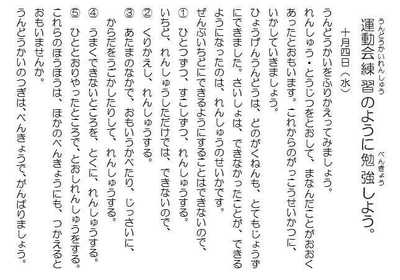 運動会練習のように勉強しよう。
うんどうかいれんしゅう
べんきょう
十月四日(水)
うんどうかいをふりかえってみましょう。
れんしゅう・とうじつをとおして、まなんだことがおおく
あったとおもいます。これからのがっこうせいかつに、
いかしていきましょう。
ひょうげんうんどうは、どのがくねんも、とてもじょうず
にできました。さいしょは、できなかったことが、できる
ようになったのは、れんしゅうのせいかです。
ぜんぶいちどにできるようにすることはできないので、
① ひとつずつ、すこしずつ、れんしゅうする。
いちど、れんしゅうしただけでは、できないので、
② くりかえし、れんしゅうする。
③ あたまのなかで、おもいうかべたり、じっさいに、
からだをうごかしたりして、れんしゅうする。
④ うまくできないところを、とくに、れんしゅうする。
⑤ ひととおりやったところで、とおしれんしゅうをする。
これらのほうほうは、ほかのべんきょうにも、つかえると
おもいませんか。
うんどうかいのつぎは、べんきょうで、がんばりましょう。